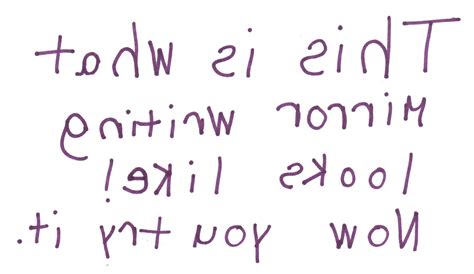 This is what
mirror writing
looks like!
Now you try it.